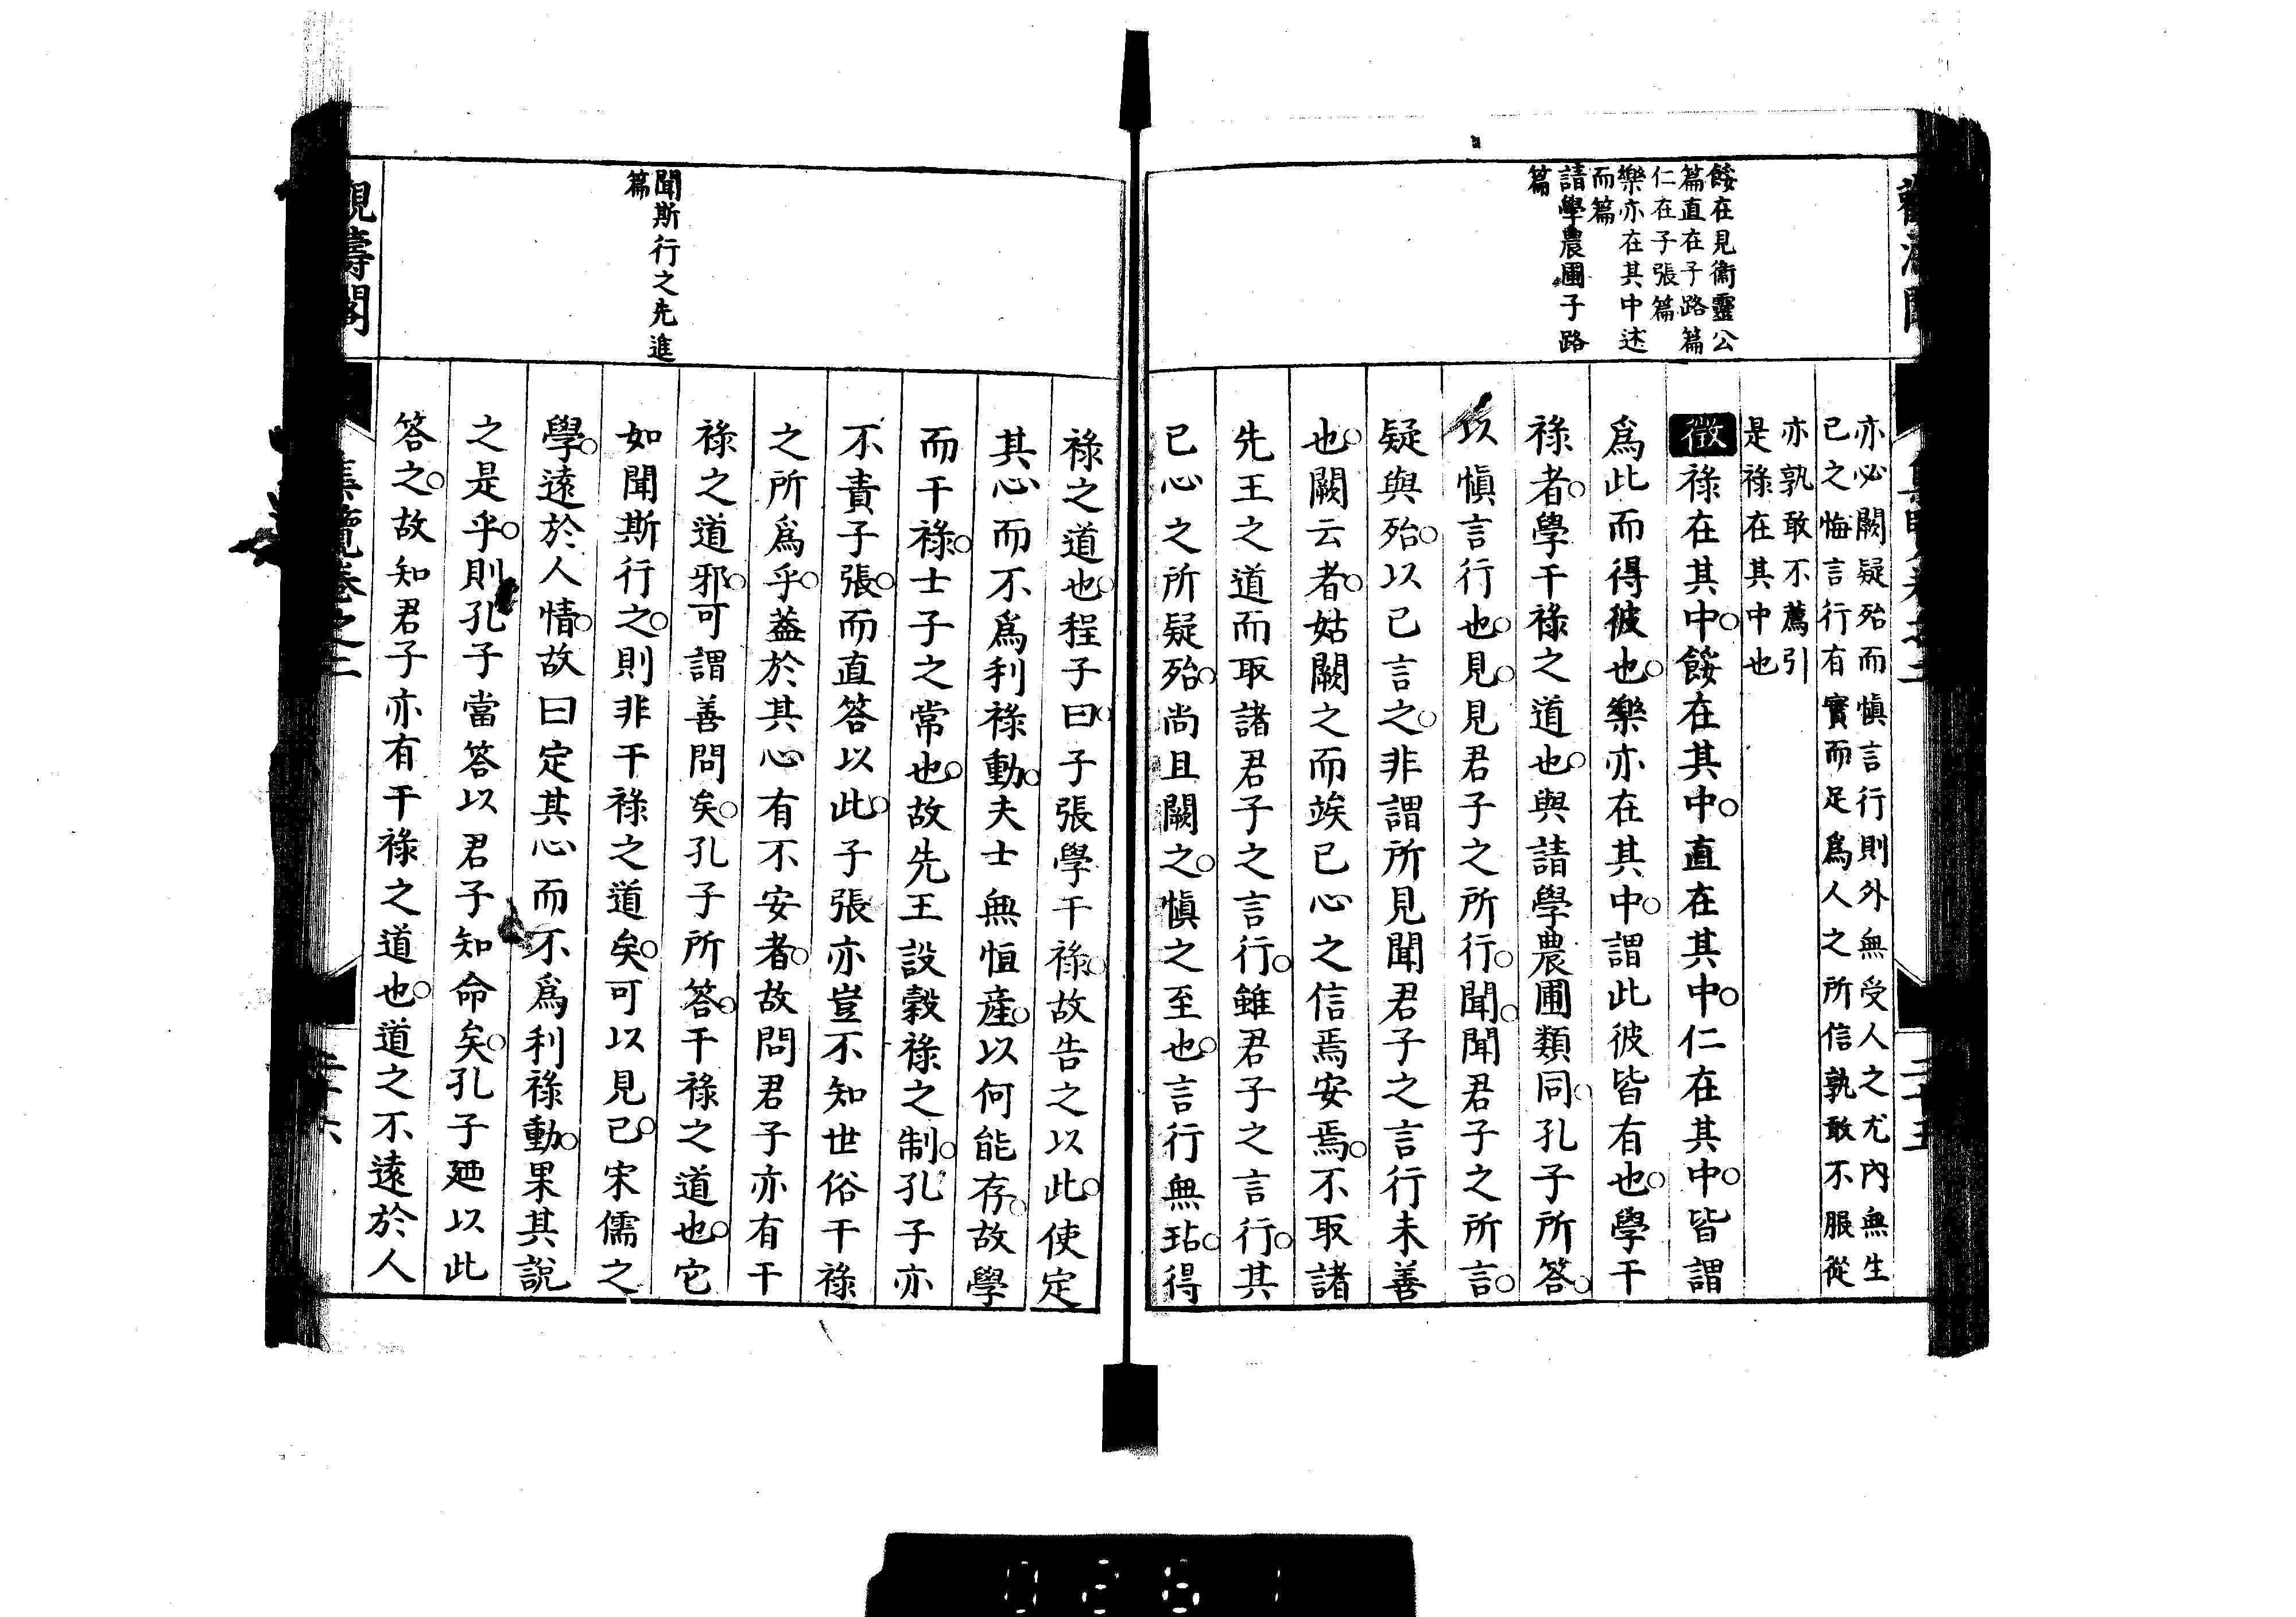 餒在見衞靈公
篇直在子路篇
仁在子張篇
樂亦在其中述
而篇
請學農圃子路
篇
亦必闕疑殆而愼言行則外無受人之尤內無生
已之悔言行有實而足爲人之所信孰敢不服從
亦孰敢不薦引
是祿在其中也
徵祿在其中○餒在其中○直在其中○仁在其中○皆謂
爲此而得彼也○樂亦在其中○謂此彼皆有也○學干
祿者○學干祿之道也○與請學農圃類同○孔子所答○
以愼言行也○見○見君子之所行○聞○聞君子之所言○
疑與殆○以已言之○非謂所見聞君子之言行未善
也○闕云者○姑闕之而竢已心之信焉安焉○不取諸
先王之道而取諸君子之言行○雖君子之言行○其
已心之所疑殆○尚且闕之○愼之至也○言行無玷○得
聞斯行之先進
篇
祿之道也○程子曰○子張學干祿○故告之以此○使定
其心而不爲利祿動○夫士無恒產○以何能存○故學
而干祿○士子之常也○故先王設穀祿之制○孔子亦
不責子張○而直答以此○子張亦豈不知世俗干祿
之所爲乎○蓋於其心有不安者○故問君子亦有干
祿之道邪○可謂善問矣○孔子所答○干祿之道也○它
如聞斯行之○則非干祿之道矣○可以見已○宋儒之
學○遠於人情○故曰定其心而不爲利祿動○果其說
之是乎○則孔子當答以君子知命矣○孔子廼以此
答之○故知君子亦有干祿之道也○道之不遠於人
觀濤閣
集覽卷之二
二十六